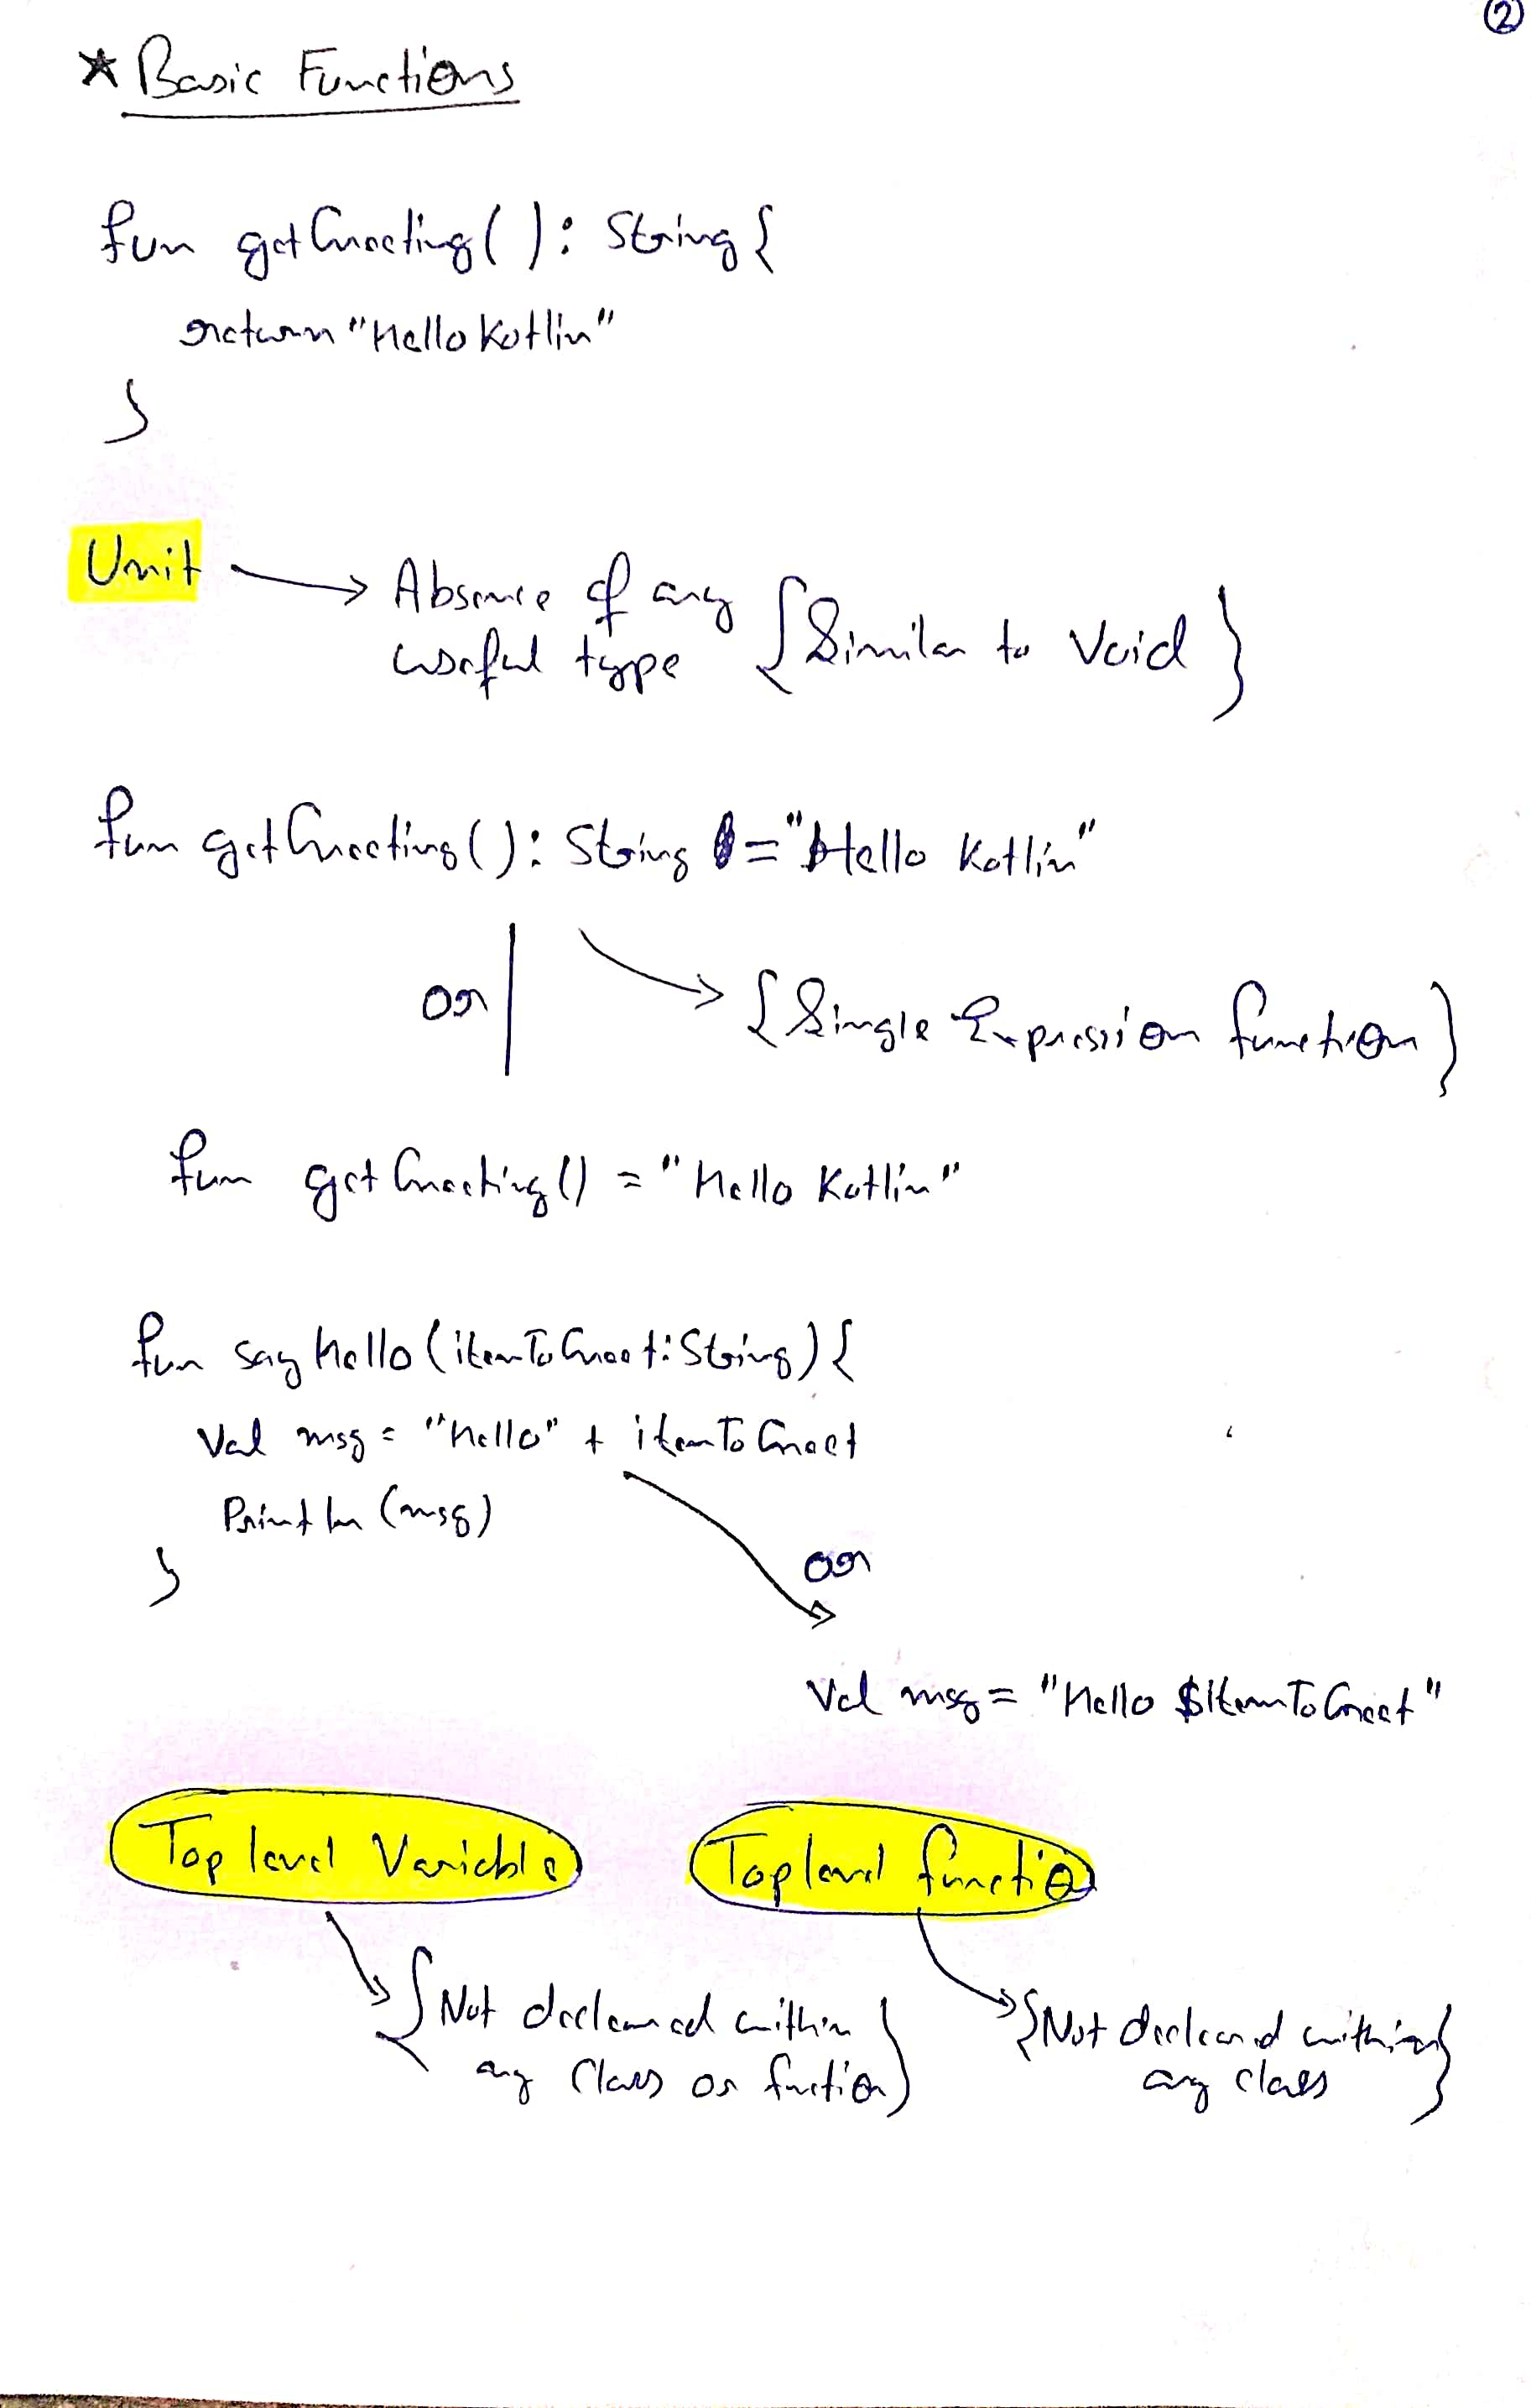 ②
* Basic Functions
fun getGreeting(): String {
return "Hello Kotlin"
}
Unit → Absence of any
useful type {Similar to Void}
fun getGreeting(): String = "Hello Kotlin"
or → {Single Expression function}
fun getGreeting() = "Hello Kotlin"
fun sayHello(itemToGreet: String) {
Val msg = "Hello" + itemToGreet
Println (msg)
}
or
Val msg = "Hello $ItemToGreet"
Top level Variable Top level functio
{Not declared within
any Class or fuction}
{Not declared within
any class}